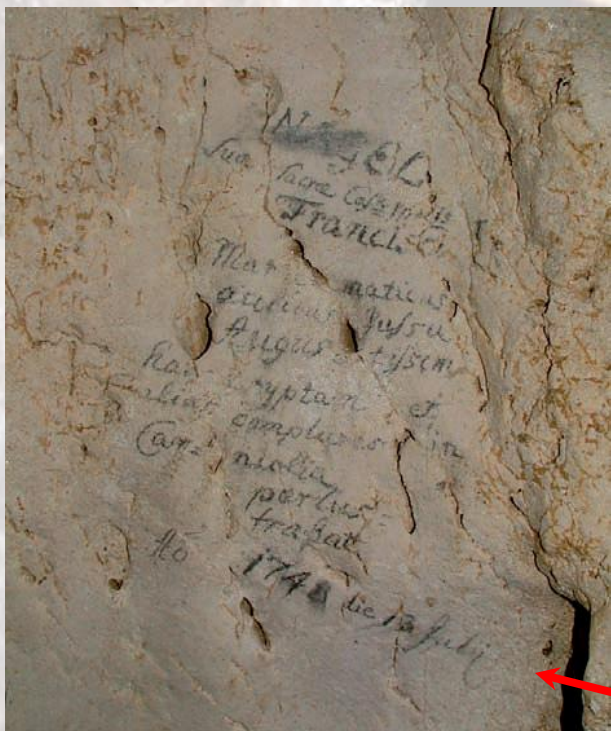 N
EL
Suæ Sacræ
Franci
Mat maticus
aulicus Jussu
Augus tissim
hac cryptam et
alias complures in
Car niolia
perlus=
trabat
Aō 1748 die Julij